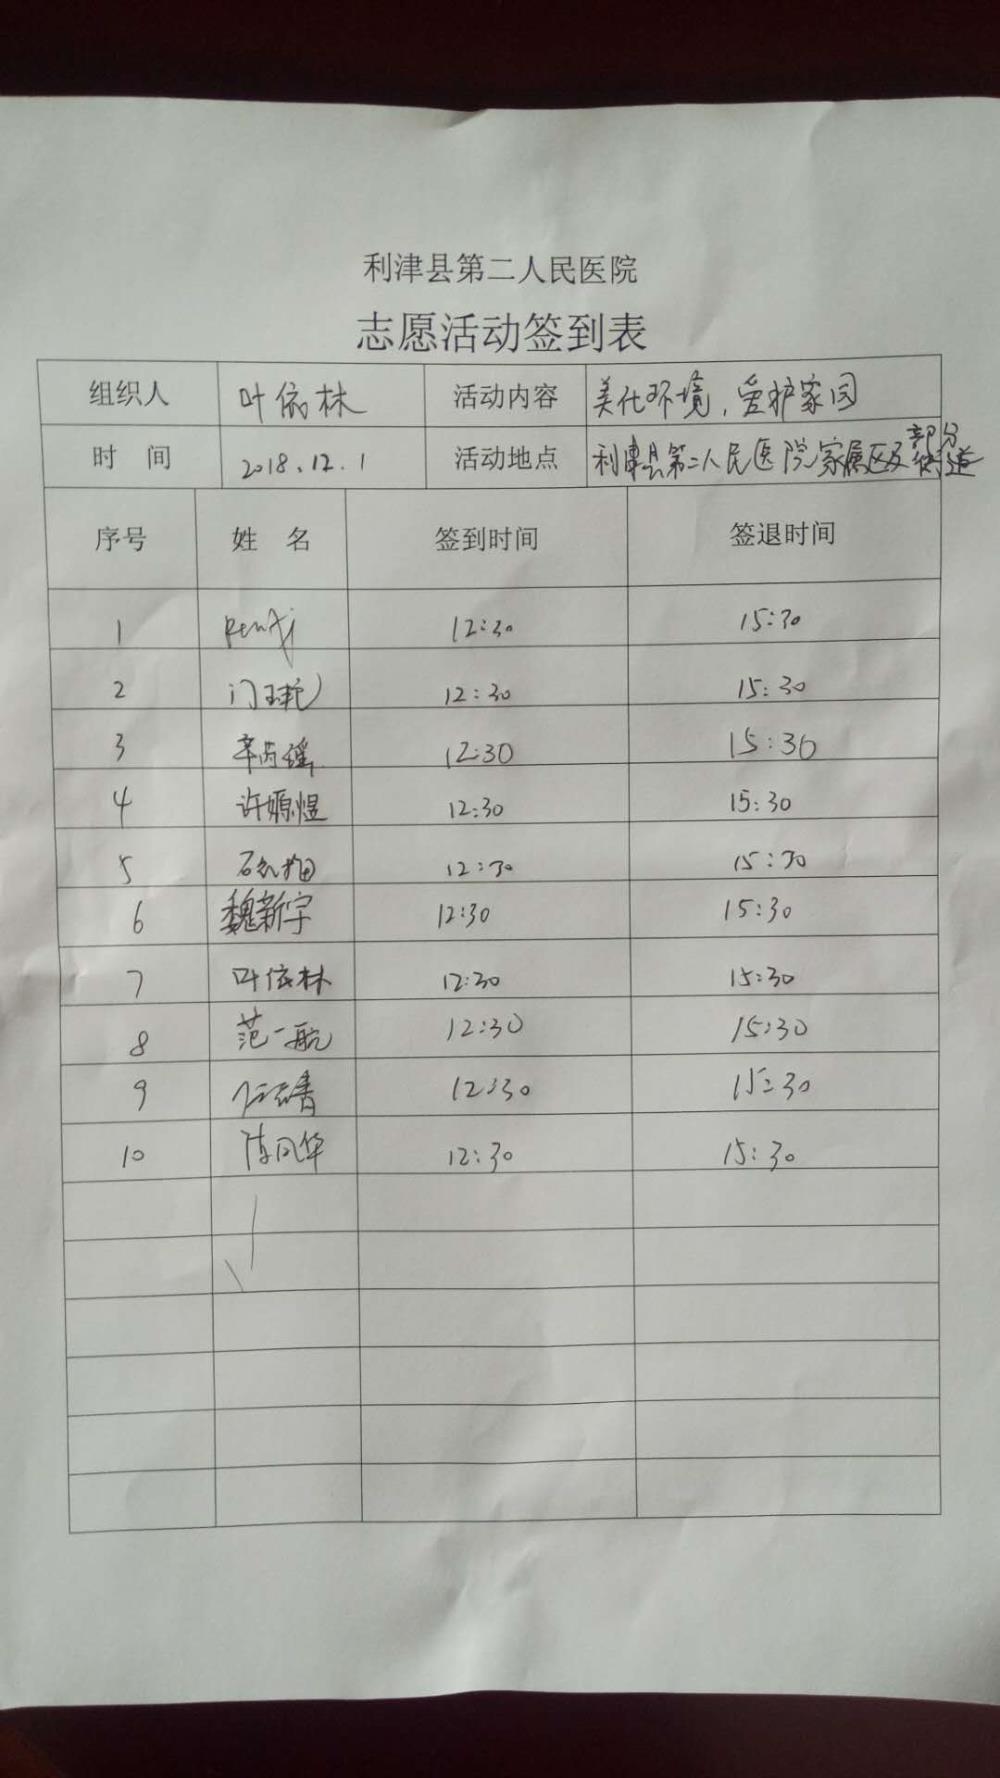 利津县第二人民医院
志愿活动签到表
组织人 叶依林 活动内容 美化环境，爱护家园
时 间 2018.12.1 活动地点 利津县第二人民医院家属区及部分街道
序号 姓 名 签到时间 签退时间
1 12:30 15:30
2 门 12:30 15:30
3 辛芮瑶 12:30 15:30
4 许嫄煜 12:30 15:30
5 石 12:30 15:30
6 魏新宇 12:30 15:30
7 叶依林 12:30 15:30
8 范一航 12:30 15:30
9 12:30 15:30
10 陈风华 12:30 15:30